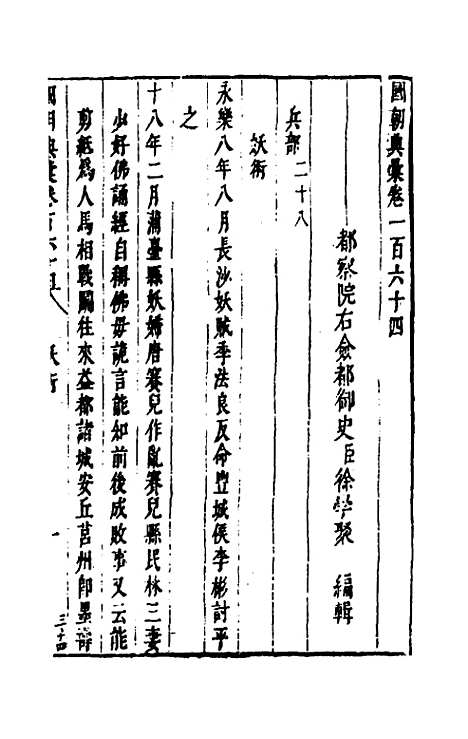 國朝典彙卷一百六十四
都察院右僉都御史臣徐學聚 編輯
兵部二十八
妖術
永樂八年八月長沙妖賊李法良反命豐城侯李彬討平
之
十八年二月蒲臺縣妖婦唐賽兒作亂賽兒縣民林三妻
少好佛誦經自稱佛母詭言能知前後成敗事又云能
剪紙為人馬相戰鬬往來益都諸城安丘莒州即墨壽
國朝典彙卷百六十四 妖術 一